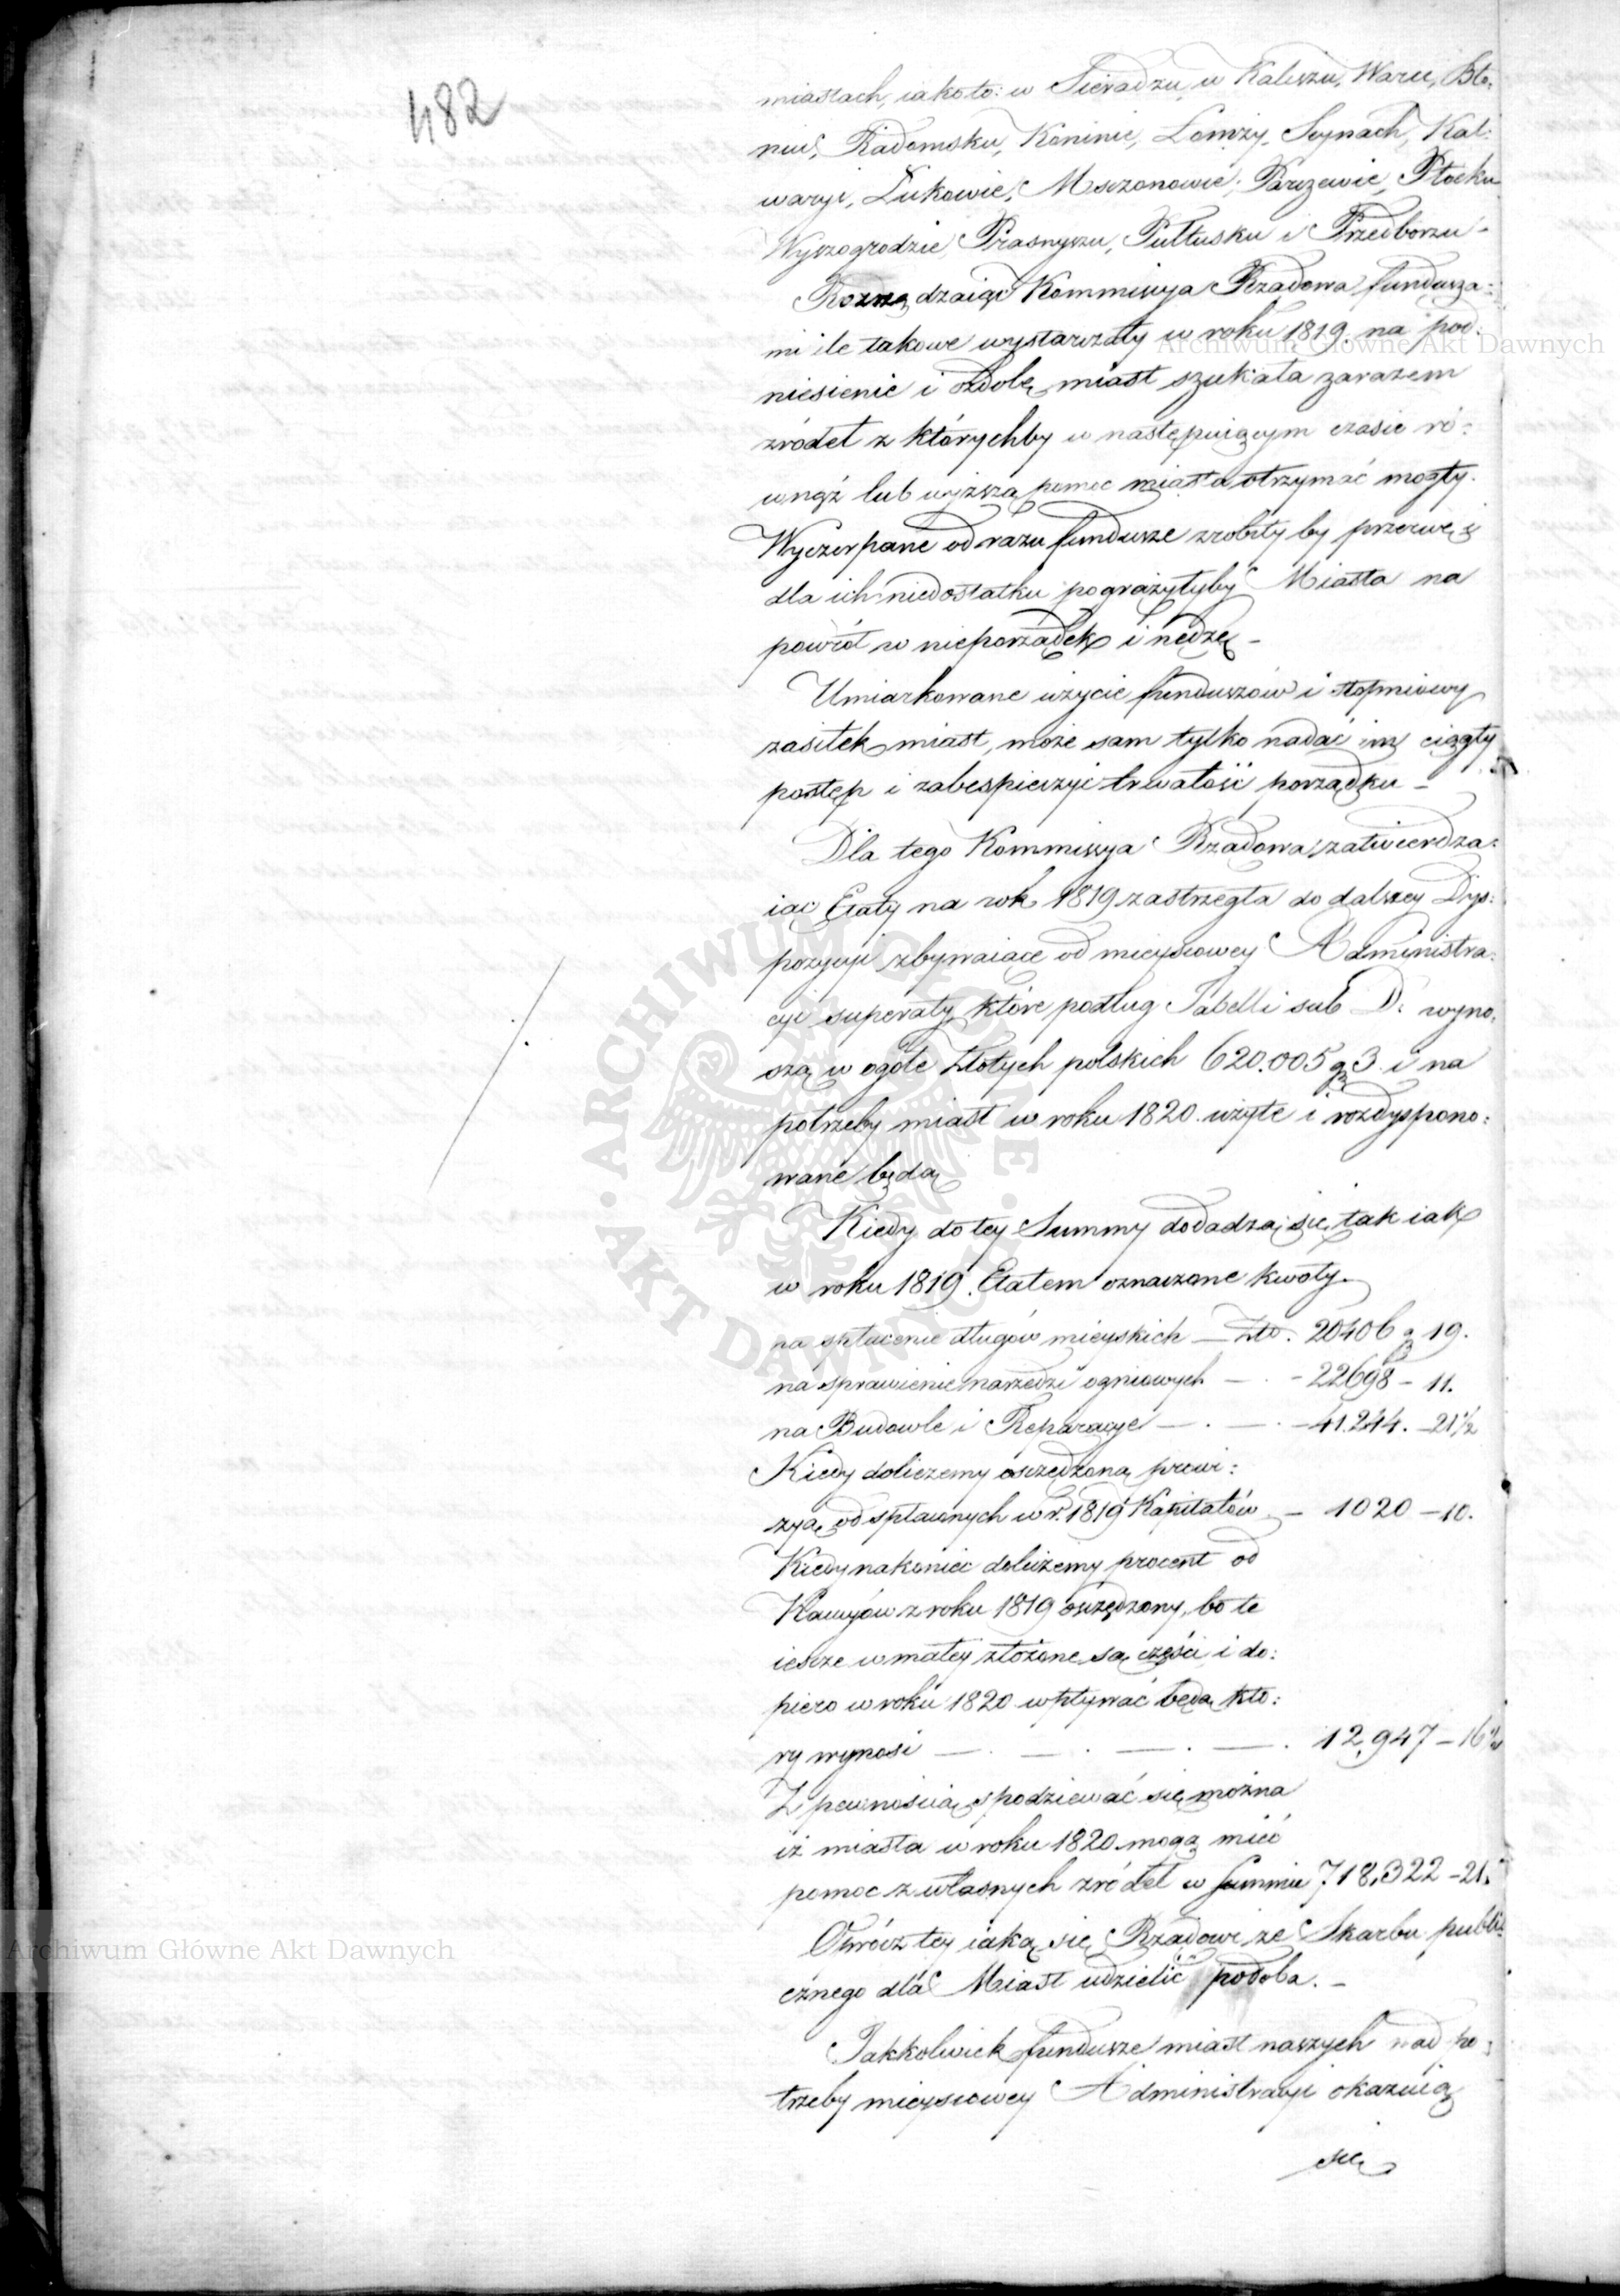 482
miastach, iakoto: w Sieradzu, w Kaliszu, Warcie, Bło:
niu, Radomsku, Koninie, Lomży, Seynach, Kal:
waryi, Łukowie, Mszczonowie, Parczewie, Płocku
Wyszogrodzie, Prasnyszu, Pułtusku i Przedborzu –
Rozrządzaiąc Kommissya Rządowa fundusza:
mi ile takowe wystarczały w roku 1819. na pod:
niesienie i ozdobę miast szukała zarazem
źródeł z którychby w następuiącym czasie ró:
wnąż lub wyższą pomoc miasta otrzymać mogły.
Wyczerpane od razu fundusze zrobiły by przerwę i
dla ich niedostatku pogrążyłyby Miasta na
powrót w nieporządek i nędzę –
Umiarkowane użycie funduszów i stopniowy
zasiłek miast, może sam tylko nadać im ciągły
postęp i zabespieczyć trwałość porządku –
Dla tego Kommissya Rządowa zatwierdza:
iąc Etaty na rok 1819 zastrzegła do dalszey Dys:
pozycyi zbywaiące od mieyscowey Administra:
cyi superaty, które podług Tabelli sub D: wyno:
szą w ogóle Złotych polskich 620.005 gr 3 i na
potrzeby miast w roku 1820. użyte i rozdyspono:
wane będą
Kiedy do tey Summy dodadzą się tak iak
w roku 1819. Etatem oznaczone kwoty.
na spłacenie długów mieyskich — Złt. 20406 gr 19.
na sprawienie narzędzi ogniowych — . - 22698 - 11.
na Budowle i Reparacye — . — . - 41.244. - 21 1/2
Kiedy doliczemy oszczędzoną prowi:
zyą od spłaconych w r. 1819 Kapitałów — 1020 - 10.
Kiedy nakoniec doliczemy procent od
Kaucyów z roku 1819 oszczędzony, bo te
iescze w małey złożone są części i do:
piero w roku 1820 wpływać będą któ:
ry wynosi — . — . — . — . 12,947 - 16
Z pewnością spodziewać się można
iż miasta w roku 1820 mogą mieć
pomoc z własnych źródeł w Summie 718,322 - 21.
Oprócz tey iaką się Rządowi ze Skarbu publi:
cznego dla Miast udzielić podoba. –
Jakkolwiek fundusze miast naszych nad po:
trzeby mieyscowey Administracyi okazuią
się
Archiwum Główne Akt Dawnych
Archiwum Główne Akt Dawnych
ARCHIWUM GŁÓWNE AKT DAWNYCH